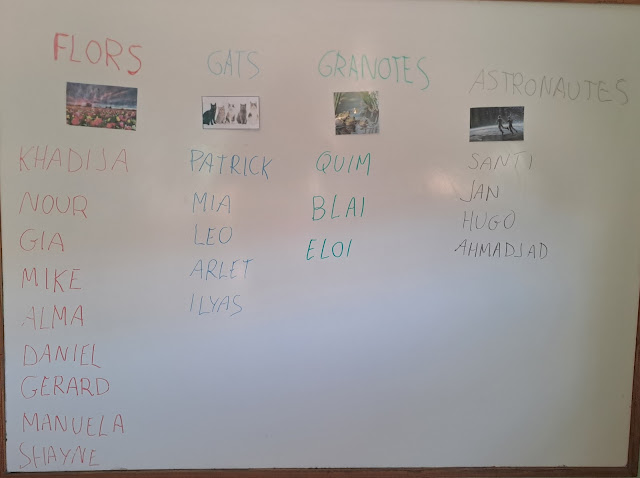 FLORS
KHADIJA
NOUR
GIA
MIKE
ALMA
DANIEL
GERARD
MANUELA
SHAYNE
GATS
PATRICK
MIA
LEO
ARLET
ILYAS
GRANOTES
QUIM
BLAI
ELOI
ASTRONAUTES
SANTI
JAN
HUGO
AHMADJAD